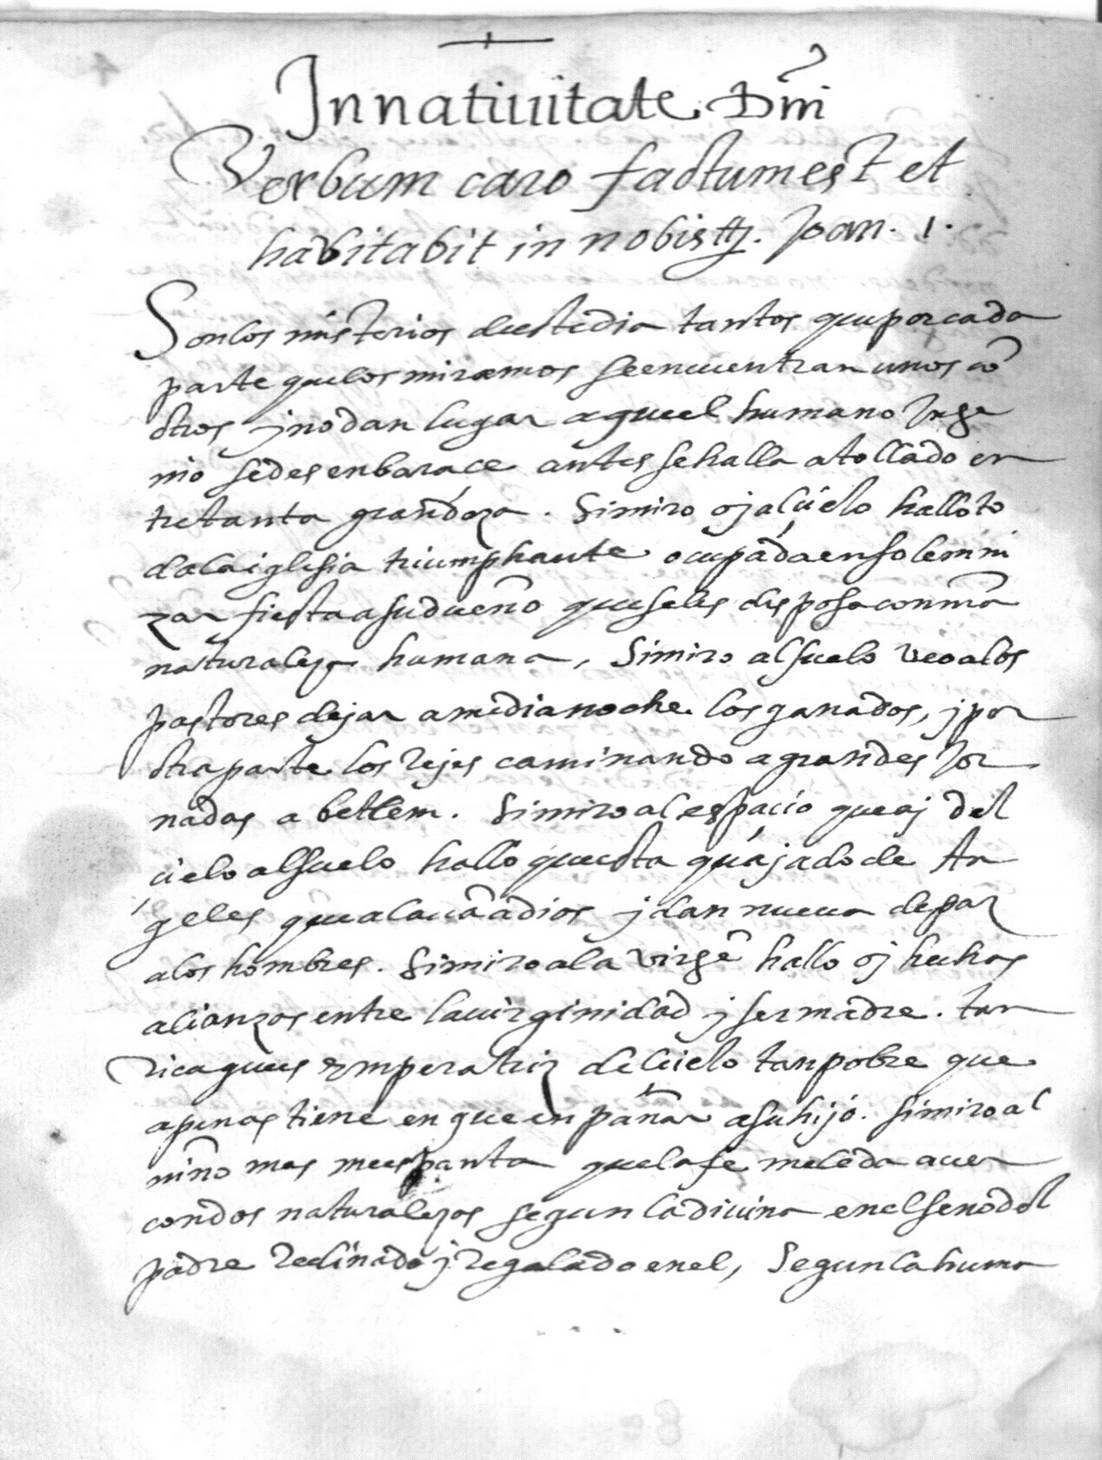 In natiuitate Dñi
Verbum caro factum est et
habitabit in nobis &. Joan. 1.
Son los misterios deste dia tantos que por cada
parte que los miremos se encuentran unos cõ
otros y no dan lugar a que el humano Inge
nio se desenbarace antes se halla atollado en
tre tanta grandeza. Si miro oj al cielo hallo to
da la iglesia triumphante ocupada en solemni
zar fiesta a su dueño que se les desposa con nrã
naturaleza humana, Si miro al suelo veo a los
pastores dejar a media noche los ganados, y por
otra parte los Rejes caminando a grandes Jor
nadas a betlem. Si miro al espacio que aj del
cielo al suelo hallo que esta quajado de An
geles que alauã a dios y dan nueua de paz
a los hombres. Si miro a la virgẽ hallo oj hechas
alianzas entre la uirginidad y ser madre. tan
rica ques Emperatriz del cielo tan pobre que
apenas tiene en que enpañar a su hijo. Si miro al
niño mas me espanta que la fe me le da a uer
con dos naturalezas segun la diuina en el seno del
padre Reclinado y Regalado en el, Segun la huma